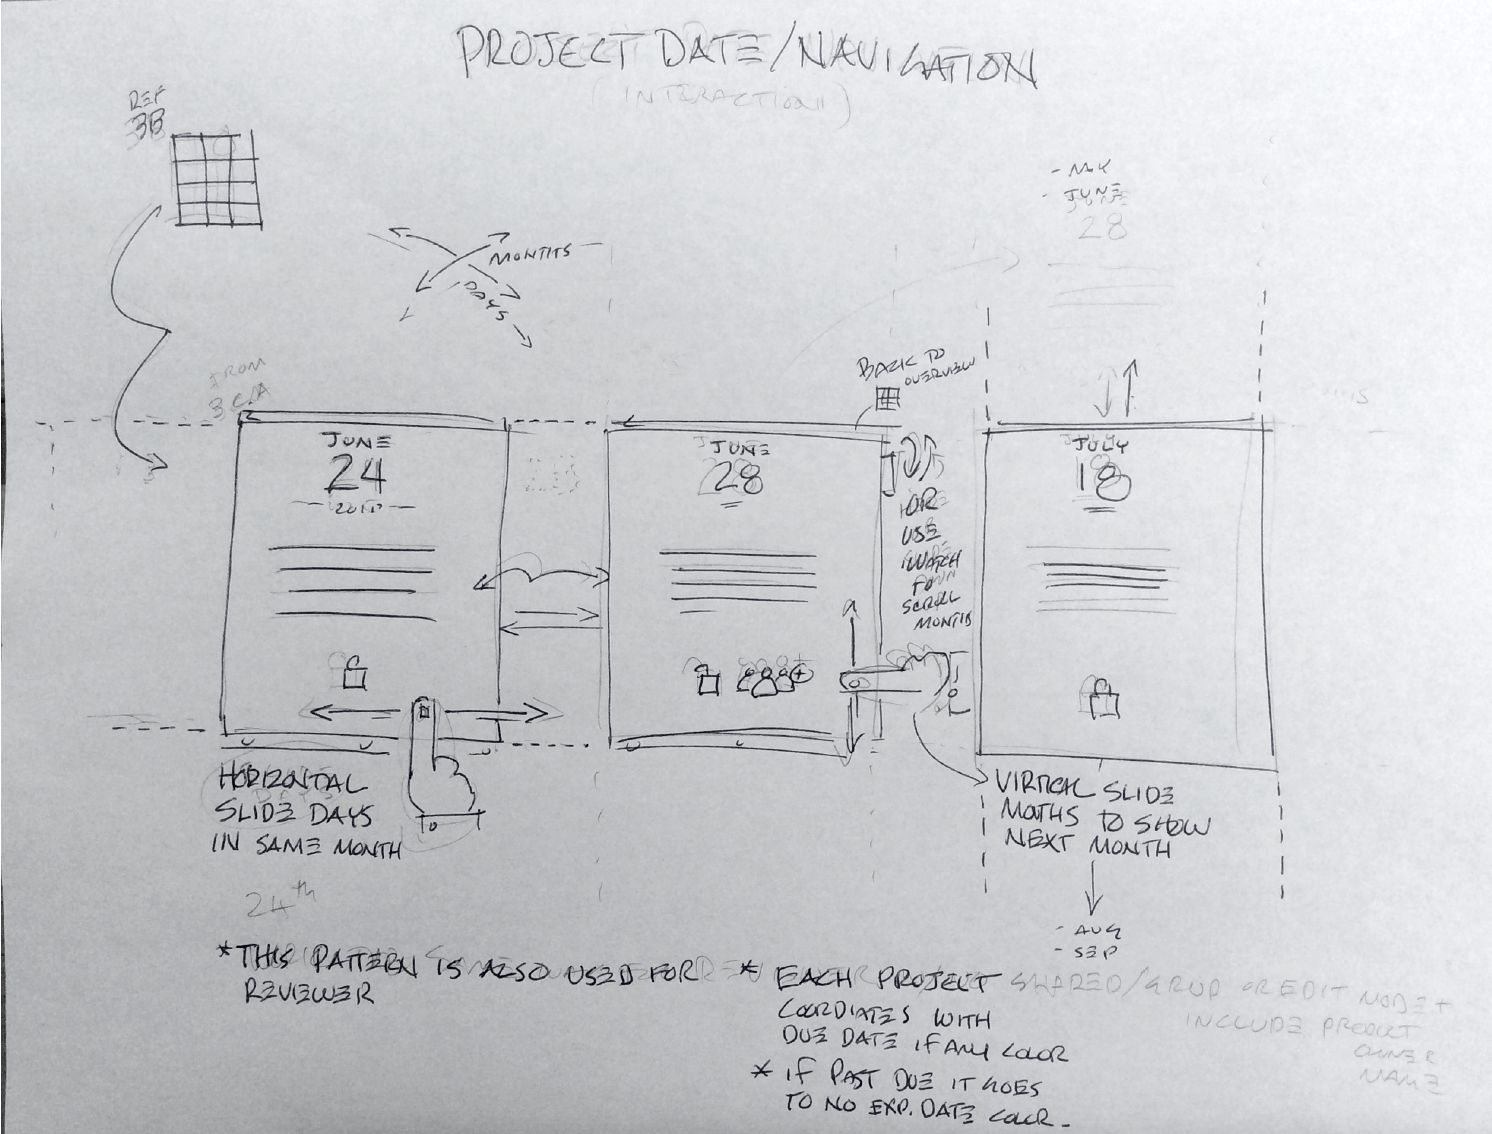 PROJECT DATE/NAVIGATION
(INTERACTION)
REF
3B
MONTHS
DAYS
- MAY
- JUNE
28
FROM
3
BACK TO
OVERVIEW
JUNE
24
JUNE
28
OR
USE
SWATCH
TO
SCROLL
MONTH
JULY
18
HORIZONTAL
SLIDE DAYS
IN SAME MONTH
VIRTICAL SLIDE
MOTHS TO SHOW
NEXT MONTH
- AUG
- SEP
24th
* THIS PATTERN IS ALSO USED FOR
REVIEWER
* EACH PROJECT
COORDIATES WITH
DUE DATE IF ANY COLOR
* IF PAST DUE IT GOES
TO NO EXP. DATE COLOR.
SHARED/GRUP OR EDIT MODE +
INCLUDE PRODUCT
OWNER
NAME